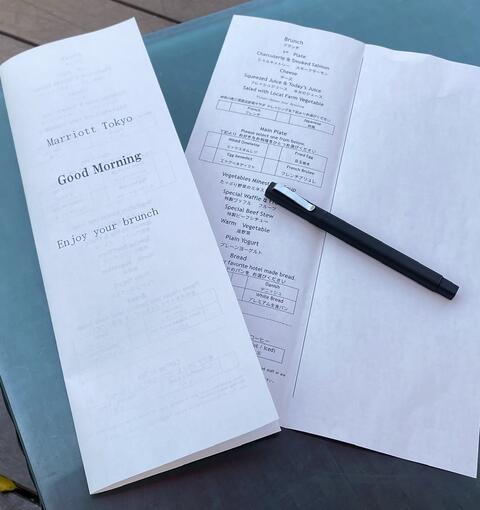 Marriott Tokyo
Good Morning
Enjoy your brunch
Brunch
ブランチ
1st Plate
Charcuterie & Smoked Salmon
シャルキュトリー スモークサーモン
Cheese
チーズ
Squeezed Juice & Today's Juice
フレッシュジュース 本日のジュース
Salad with Local Farm Vegetable
French
フレンチ
Japanese
和風
Main Plate
Please select one from below.
下記より お好きなお料理をひとつお選びください
Mixed Omelette
ミックスオムレツ
Fried Egg
目玉焼き
Egg Benedict
エッグベネディクト
French Brulee
フレンチブリュレ
Vegetables Minest
たっぷり野菜のミネス
Special Waffle & Fr
特製ワッフル フルーツ
Special Beef Stew
特製ビーフシチュー
Warm Vegetable
温野菜
Plain Yogurt
プレーンヨーグルト
Bread
r favorite hotel made bread.
のパンを お選びください
Danish
デニッシュ
White Bread
プレミアム生食パン
コーヒー